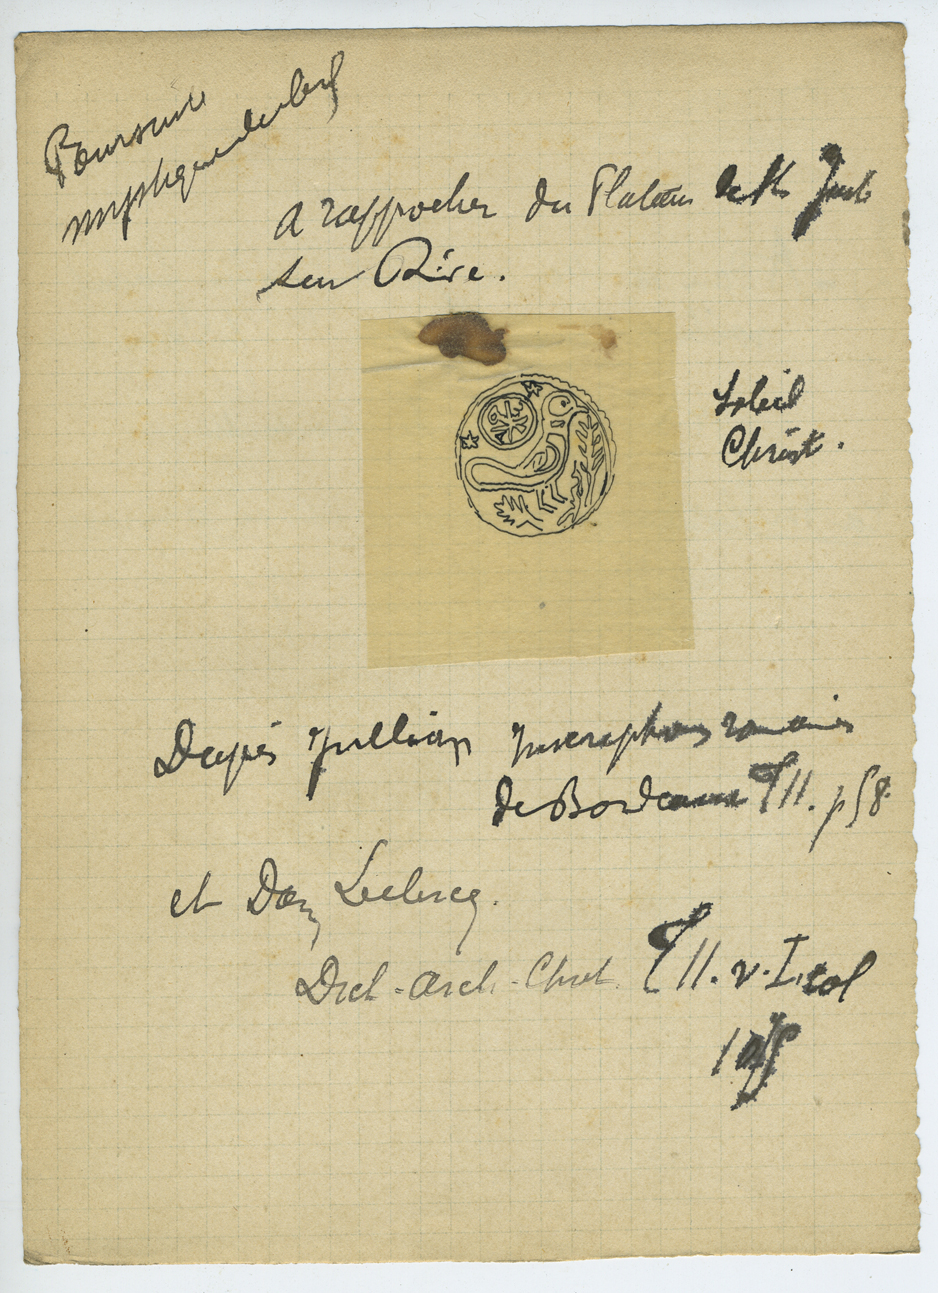 Poursuite
mystique du cerf
A rapprocher du Plateau de St Just
sur Dive.
Soleil
Christ.
D'après Jullian Inscriptions romaines
de Bordeaux T II. p 58
et Dom Leclercq.
Dict. Arch. Chret. T II. v. I. col